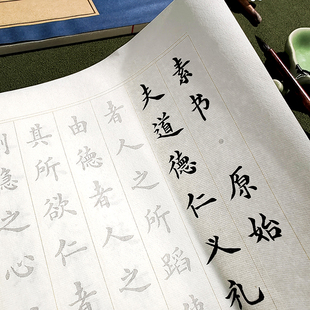 素书 原始
夫道德仁义礼
者人之所蹈使
由德者人之
其所欲仁者
隐之心